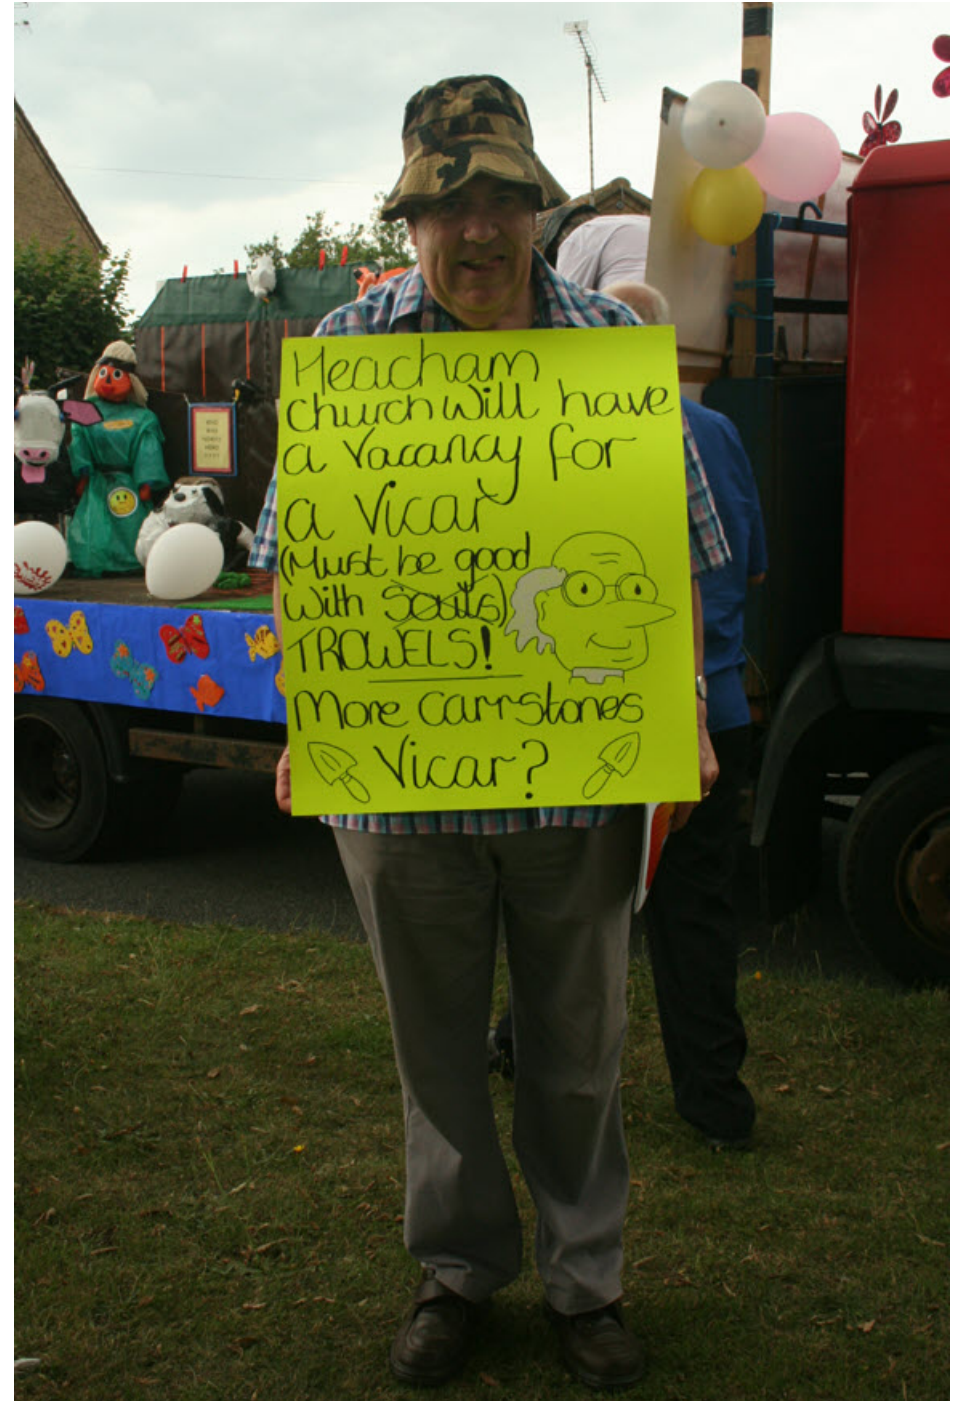 Heacham
Church Will have
a Vacancy for
a Vicar
(Must be good
With Souls)
TROWELS!
More Carrstones
Vicar?